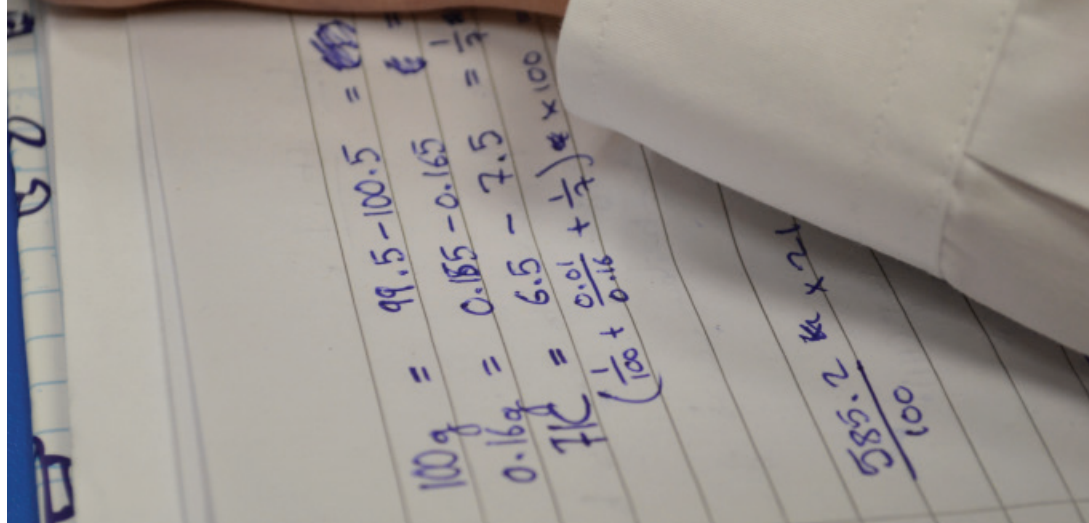 100g = 99.5 - 100.5 =
0.16g = 0.155 - 0.165 =
7K = 6.5 - 7.5 = 1/7
(1/100 + 0.01/0.16 + 1/7) × 100 =
585.2 × 21
100